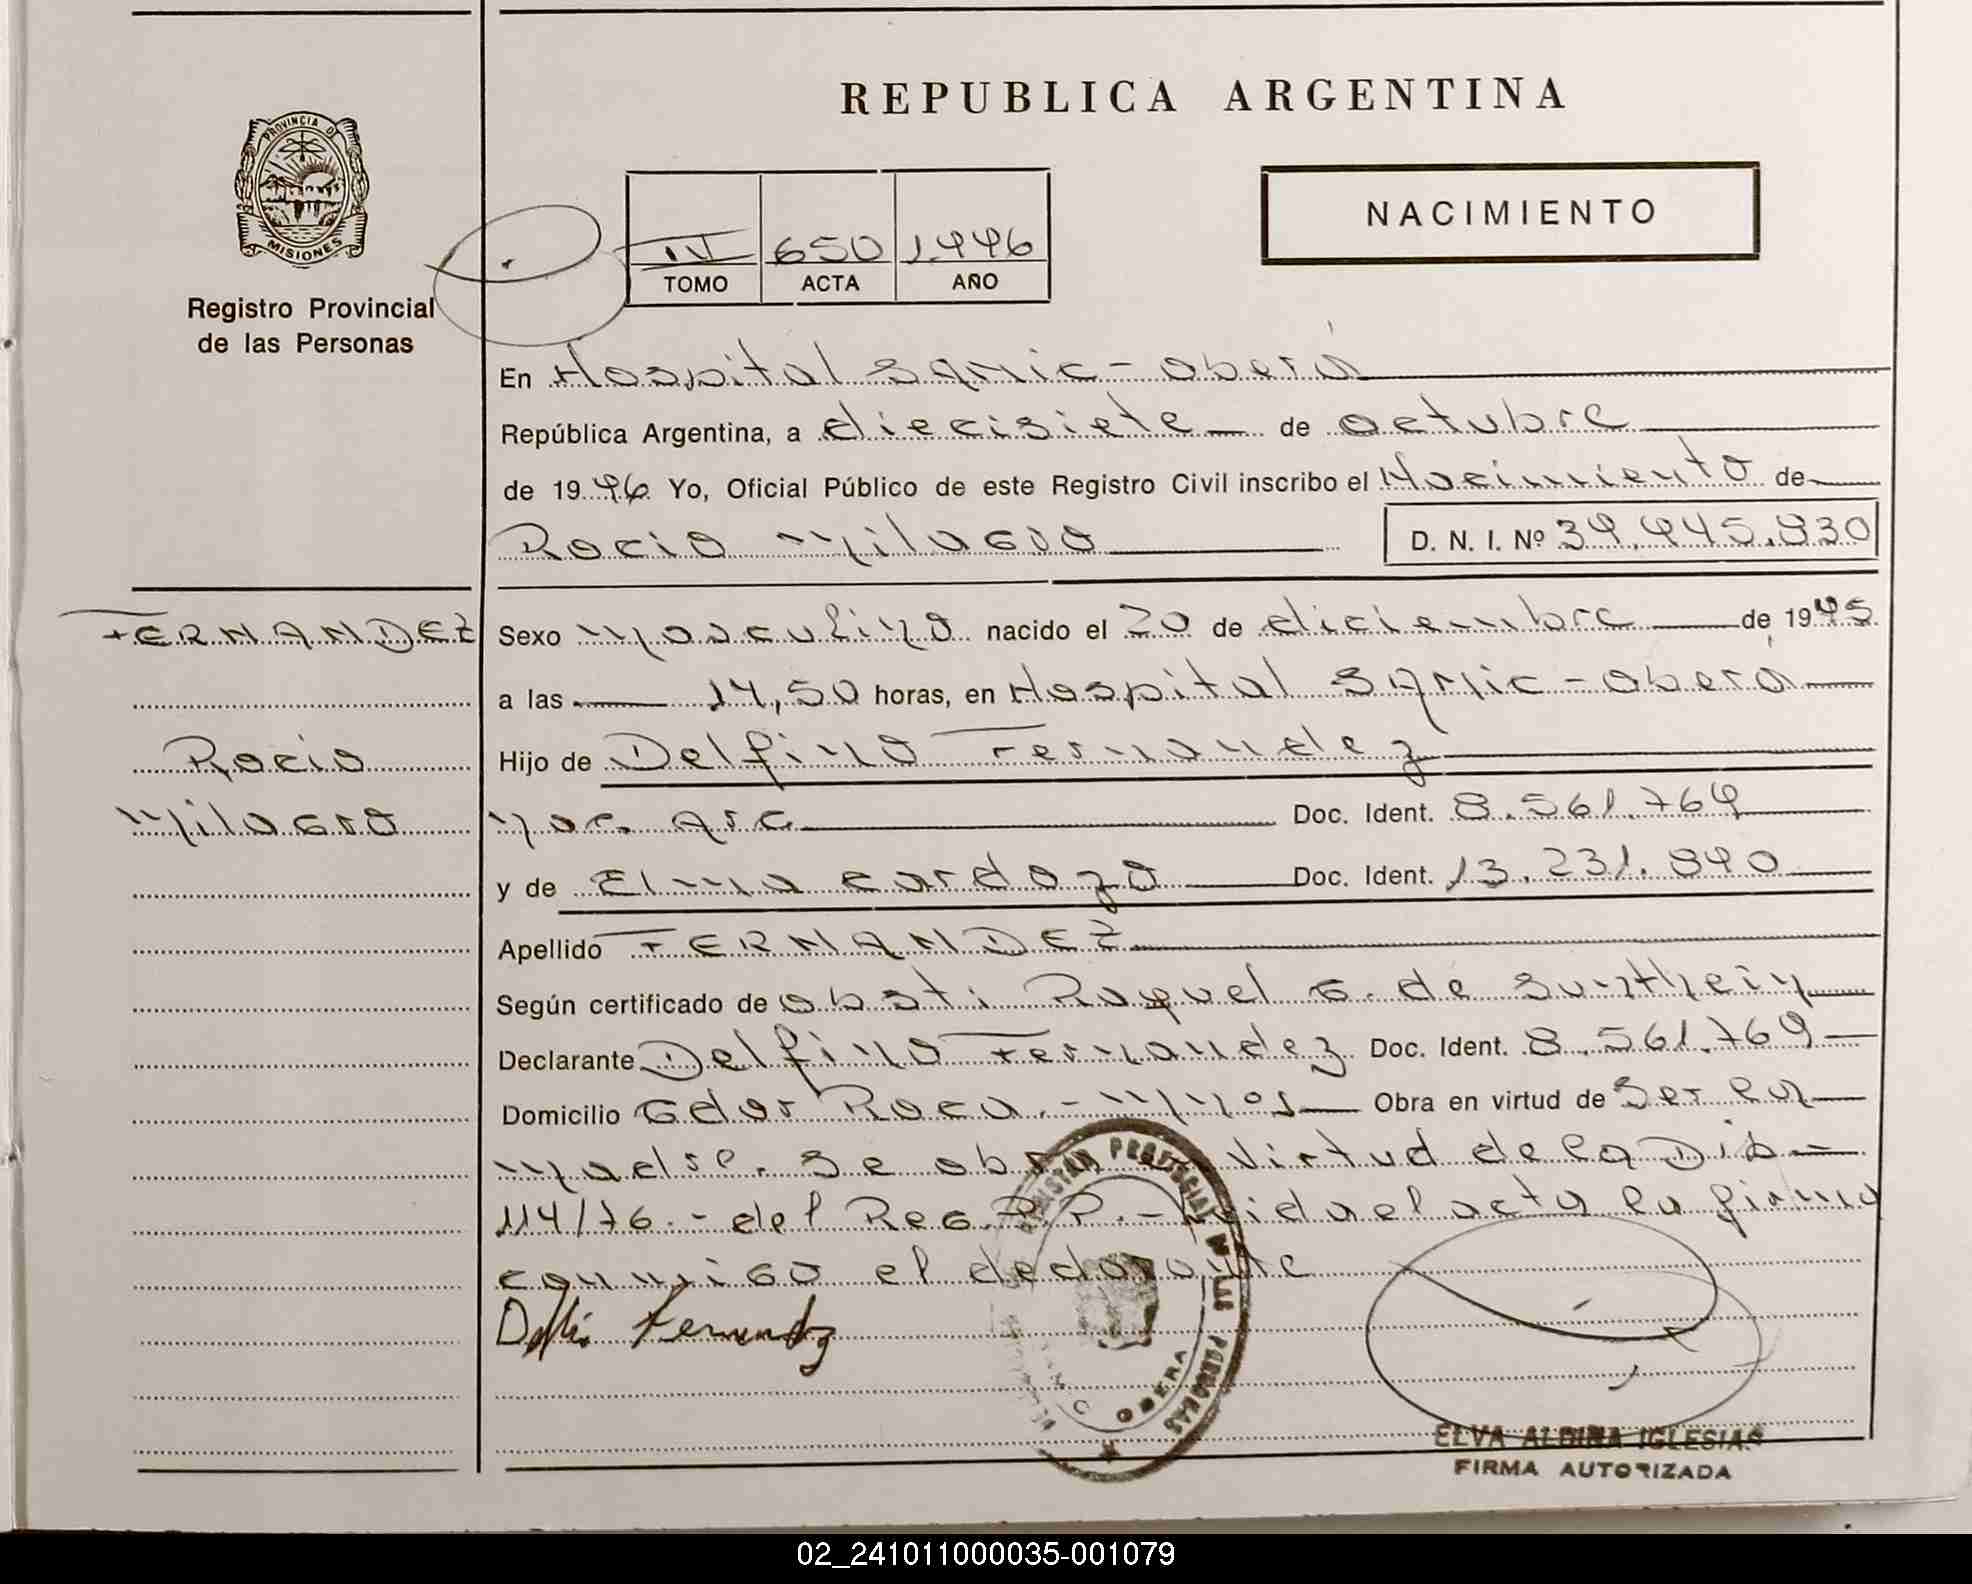 REPUBLICA ARGENTINA
PROVINCIA D
MISIONES
Registro Provincial
de las Personas
NACIMIENTO
III 650 1.996
TOMO ACTA AÑO
En Hospital SAMIC - Oberá
República Argentina, a diecisiete de octubre
de 1996 Yo, Oficial Público de este Registro Civil inscribo el Nacimiento de
Rocio Milagro D. N. I. Nº 39.945.930
FERNANDEZ
Rocio
Milagro
Sexo masculino nacido el 20 de diciembre de 1995
a las 14,50 horas, en Hospital SAMIC - Oberá
Hijo de Delfino Fernandez
nac. Arg Doc. Ident. 8.561.769
y de Elma Cardozo Doc. Ident. 13.231.890
Apellido FERNANDEZ
Según certificado de obst: Raquel G. de Sunthein
Declarante Delfino Fernandez Doc. Ident. 8.561.769
Domicilio Gdor Roca - Mnes Obra en virtud de ser su
madre. Se obra virtud de la Dis
114/76 - del Reg.P.P. - Leida el acta la firma
conmigo el declarante
Delfin Fernandez
OBERA
ELVA ALBINA IGLESIAS
FIRMA AUTORIZADA
02_241011000035-001079